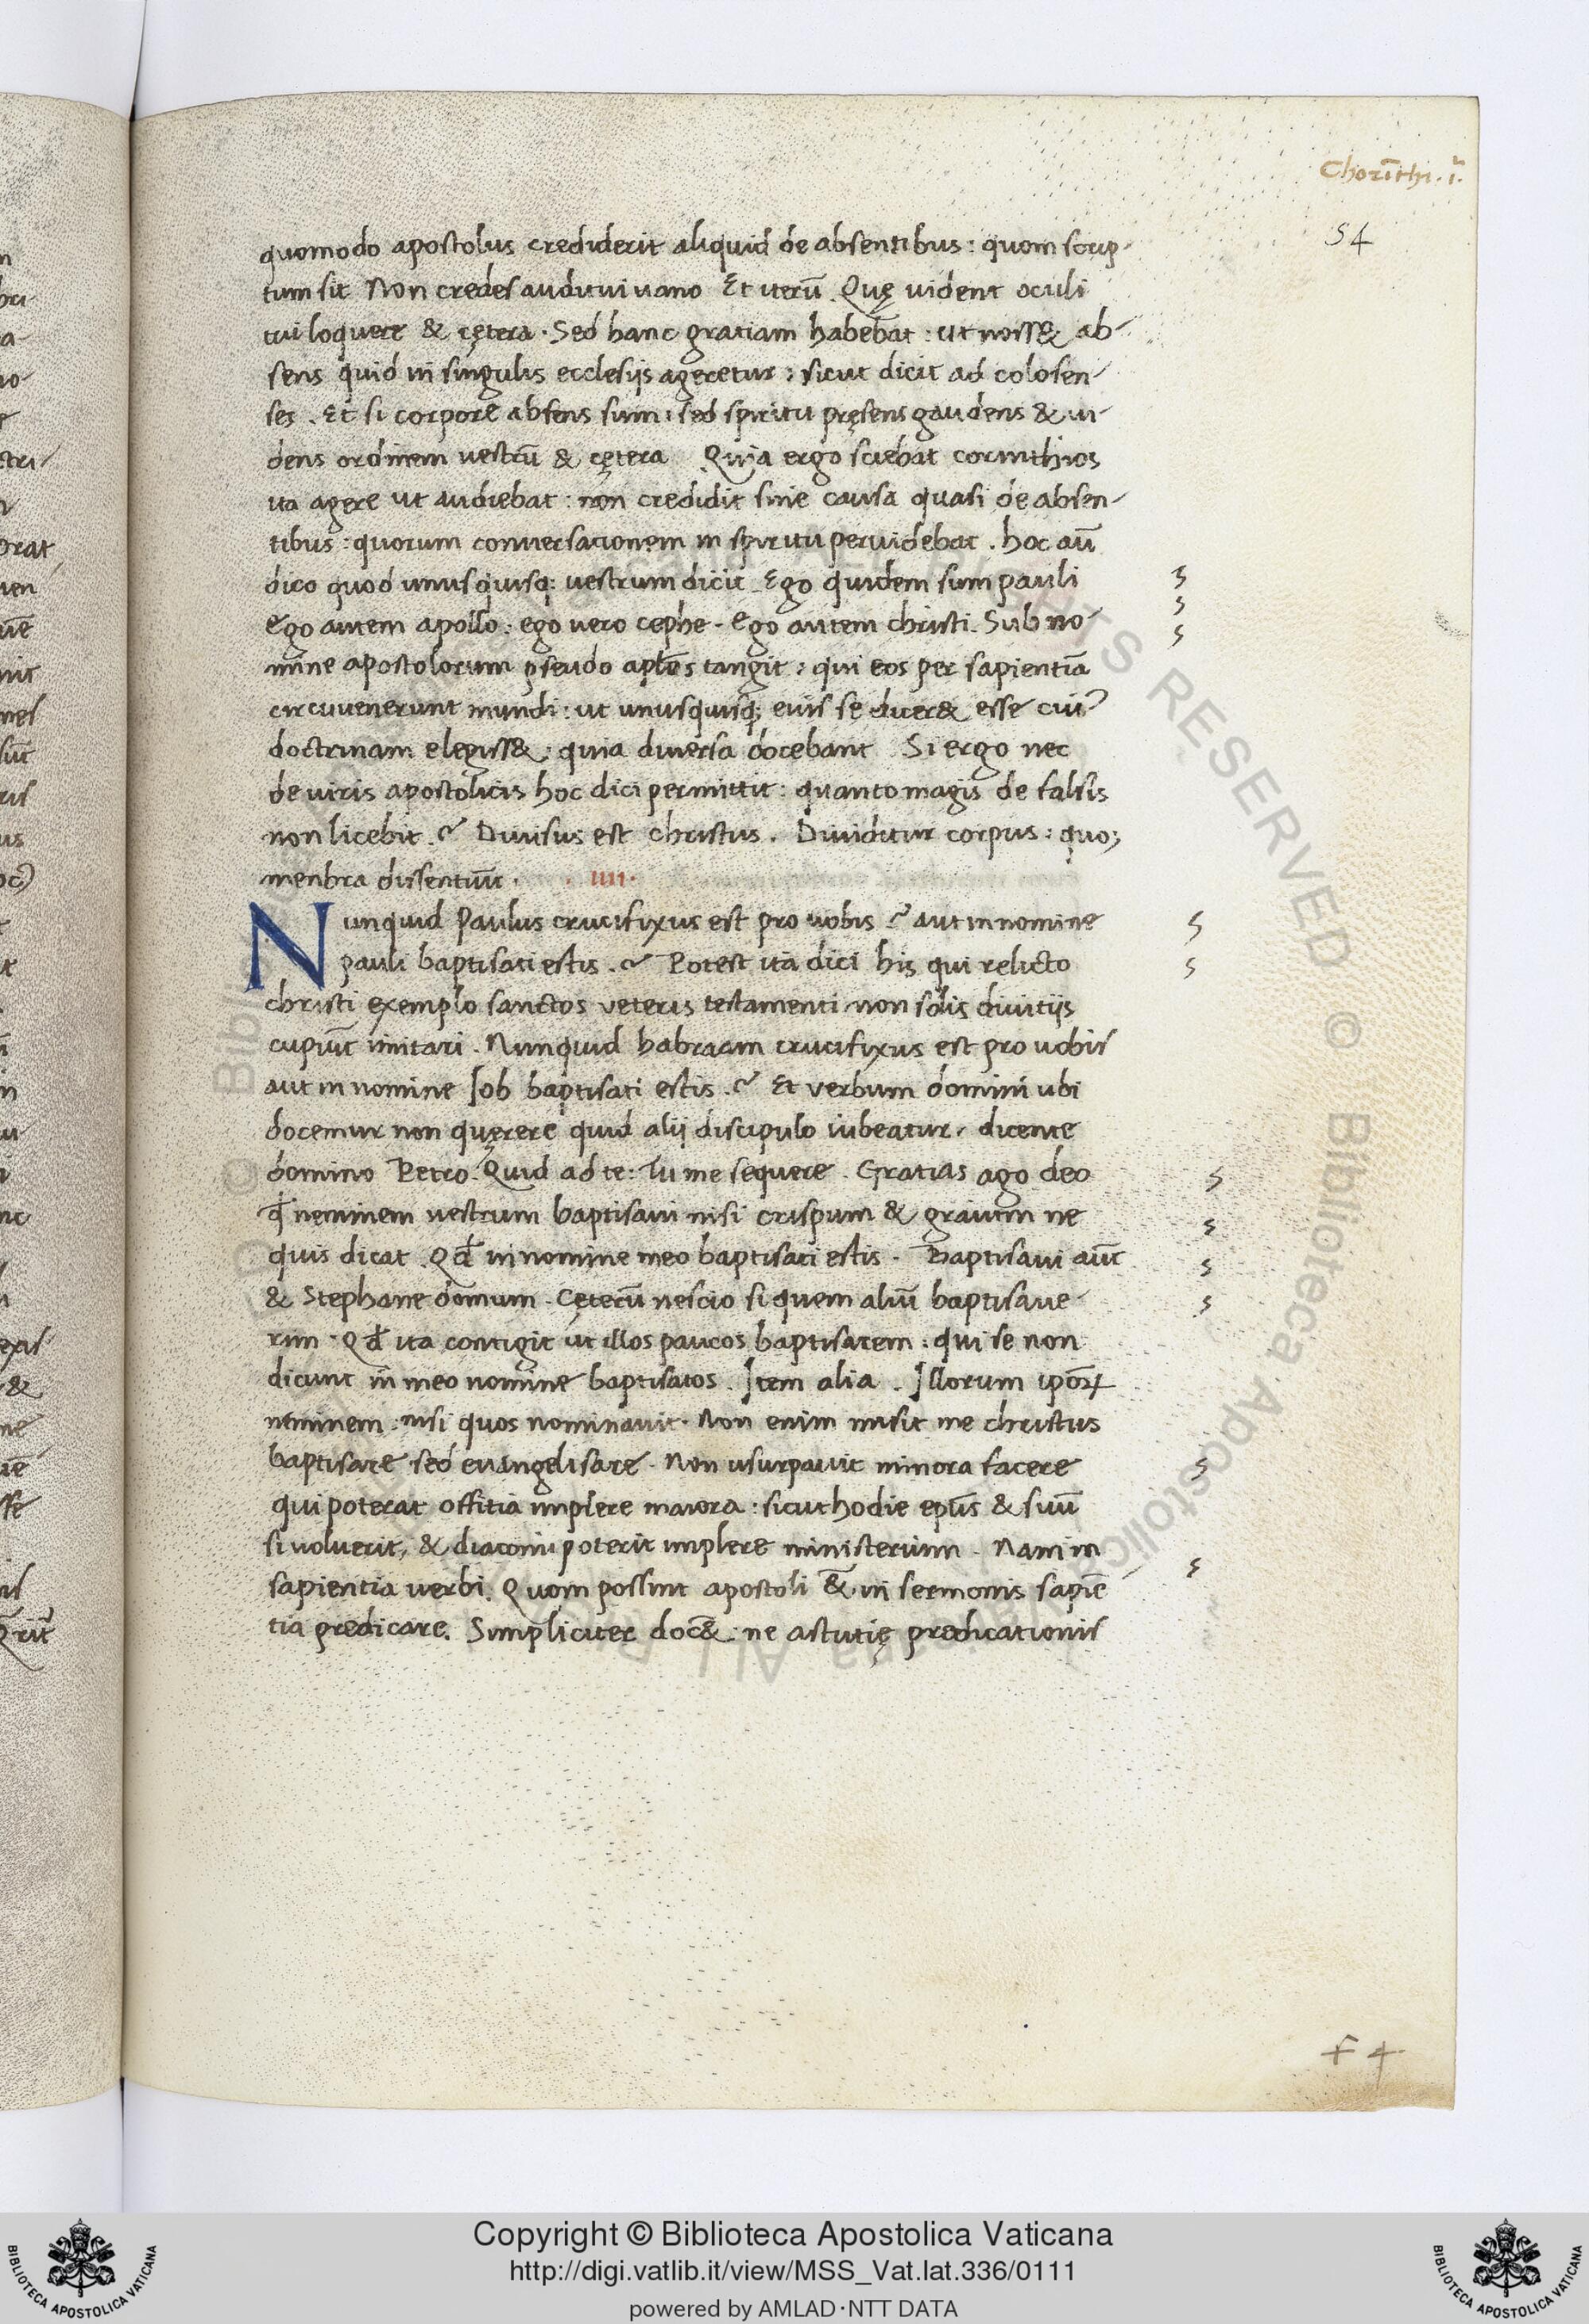 Chorīthi . i.
54
quomodo apostolus crediderit aliquid de absentibus : quom scrip-
tum sit Non credes auditui vano Et iterū . Quę vident oculi
tui loquere & cętera . Sed hanc gratiam habebat : ut noss& ab-
sens quid in singulis ecclesijs ageretur : sicut dicit ad colosen-
ses . Et si corpore absens sum : sed spiritu pręsens gaudens & vi-
dens ordinem vestrū & cętera Quia ergo sciebat corinthios
ita agere ut audiebat : non credidit sine causa quasi de absen-
tibus : quorum conversationem in spiritu pervidebat . hoc aū
dico quod unusquisq; vestrum dicit Ego quidem sum pauli
Ego autem apollo : ego vero cephe . Ego autem christi . Sub no-
mine apostolorum pseudo aplōs tangit : qui eos per sapientiā
circuvenerunt mundi : ut unusquisq; eius se dicer& esse cui'
doctrinam elegiss& : quia diversa docebant Si ergo nec
de viris apostolicis hoc dici permittit : quanto magis de falsis
non licebit . ? Divisus est christus . Dividitur corpus : quo;
menbra dissentiūt . . IIII .
Nunquid Paulus crucifixus est pro vobis ? aut in nomine
pauli baptisati estis . ? Potest ita dici his qui relicto
christi exemplo sanctos veteris testamenti non solis divitijs
cupiūt imitari . Nunquid habraam crucifixus est pro vobis
aut in nomine Iob baptisati estis . ? Et verbum domini ubi
docemur non quęrere quid alij discipulo iubeatur . dicente
domino Petro . Quid ad te : Tu me sequere . Gratias ago deo
qđ neminem vestrum baptisavi nisi crispum & graium ne
quis dicat . Qđ in nomine meo baptisati estis . Baptisavi aūt
& Stephane domum . Cęterū nescio si quem aliū baptisave-
rim . Qđ ita contigit ut illos paucos baptisarem : qui se non
dicunt in meo nomine baptisatos . Item alia . Illorum ipōꝝ
neminem : nisi quos nominavit . Non enim misit me christus
baptisare sed evangelisare . Non usurpavit minora facere
qui poterat offitia implere maiora : sicut hodie epūs & suū
si voluerit, & diaconi poterit implere ministerium . Nam in
sapientia verbi . Quom possint apostoli & in sermonis sapiē
tia predicare . Simpliciter doc& : ne astutię predicationis
f 4
Copyright © Biblioteca Apostolica Vaticana
http://digi.vatlib.it/view/MSS_Vat.lat.336/0111
powered by AMLAD·NTT DATA
BIBLIOTECA APOSTOLICA VATICANA
BIBLIOTECA APOSTOLICA VATICANA